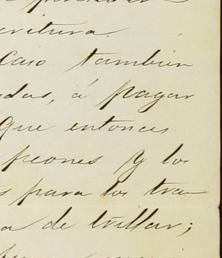 critura.
Caso tambien
das, á pagar
que entonces
peones y los
para los tra
de trillar;